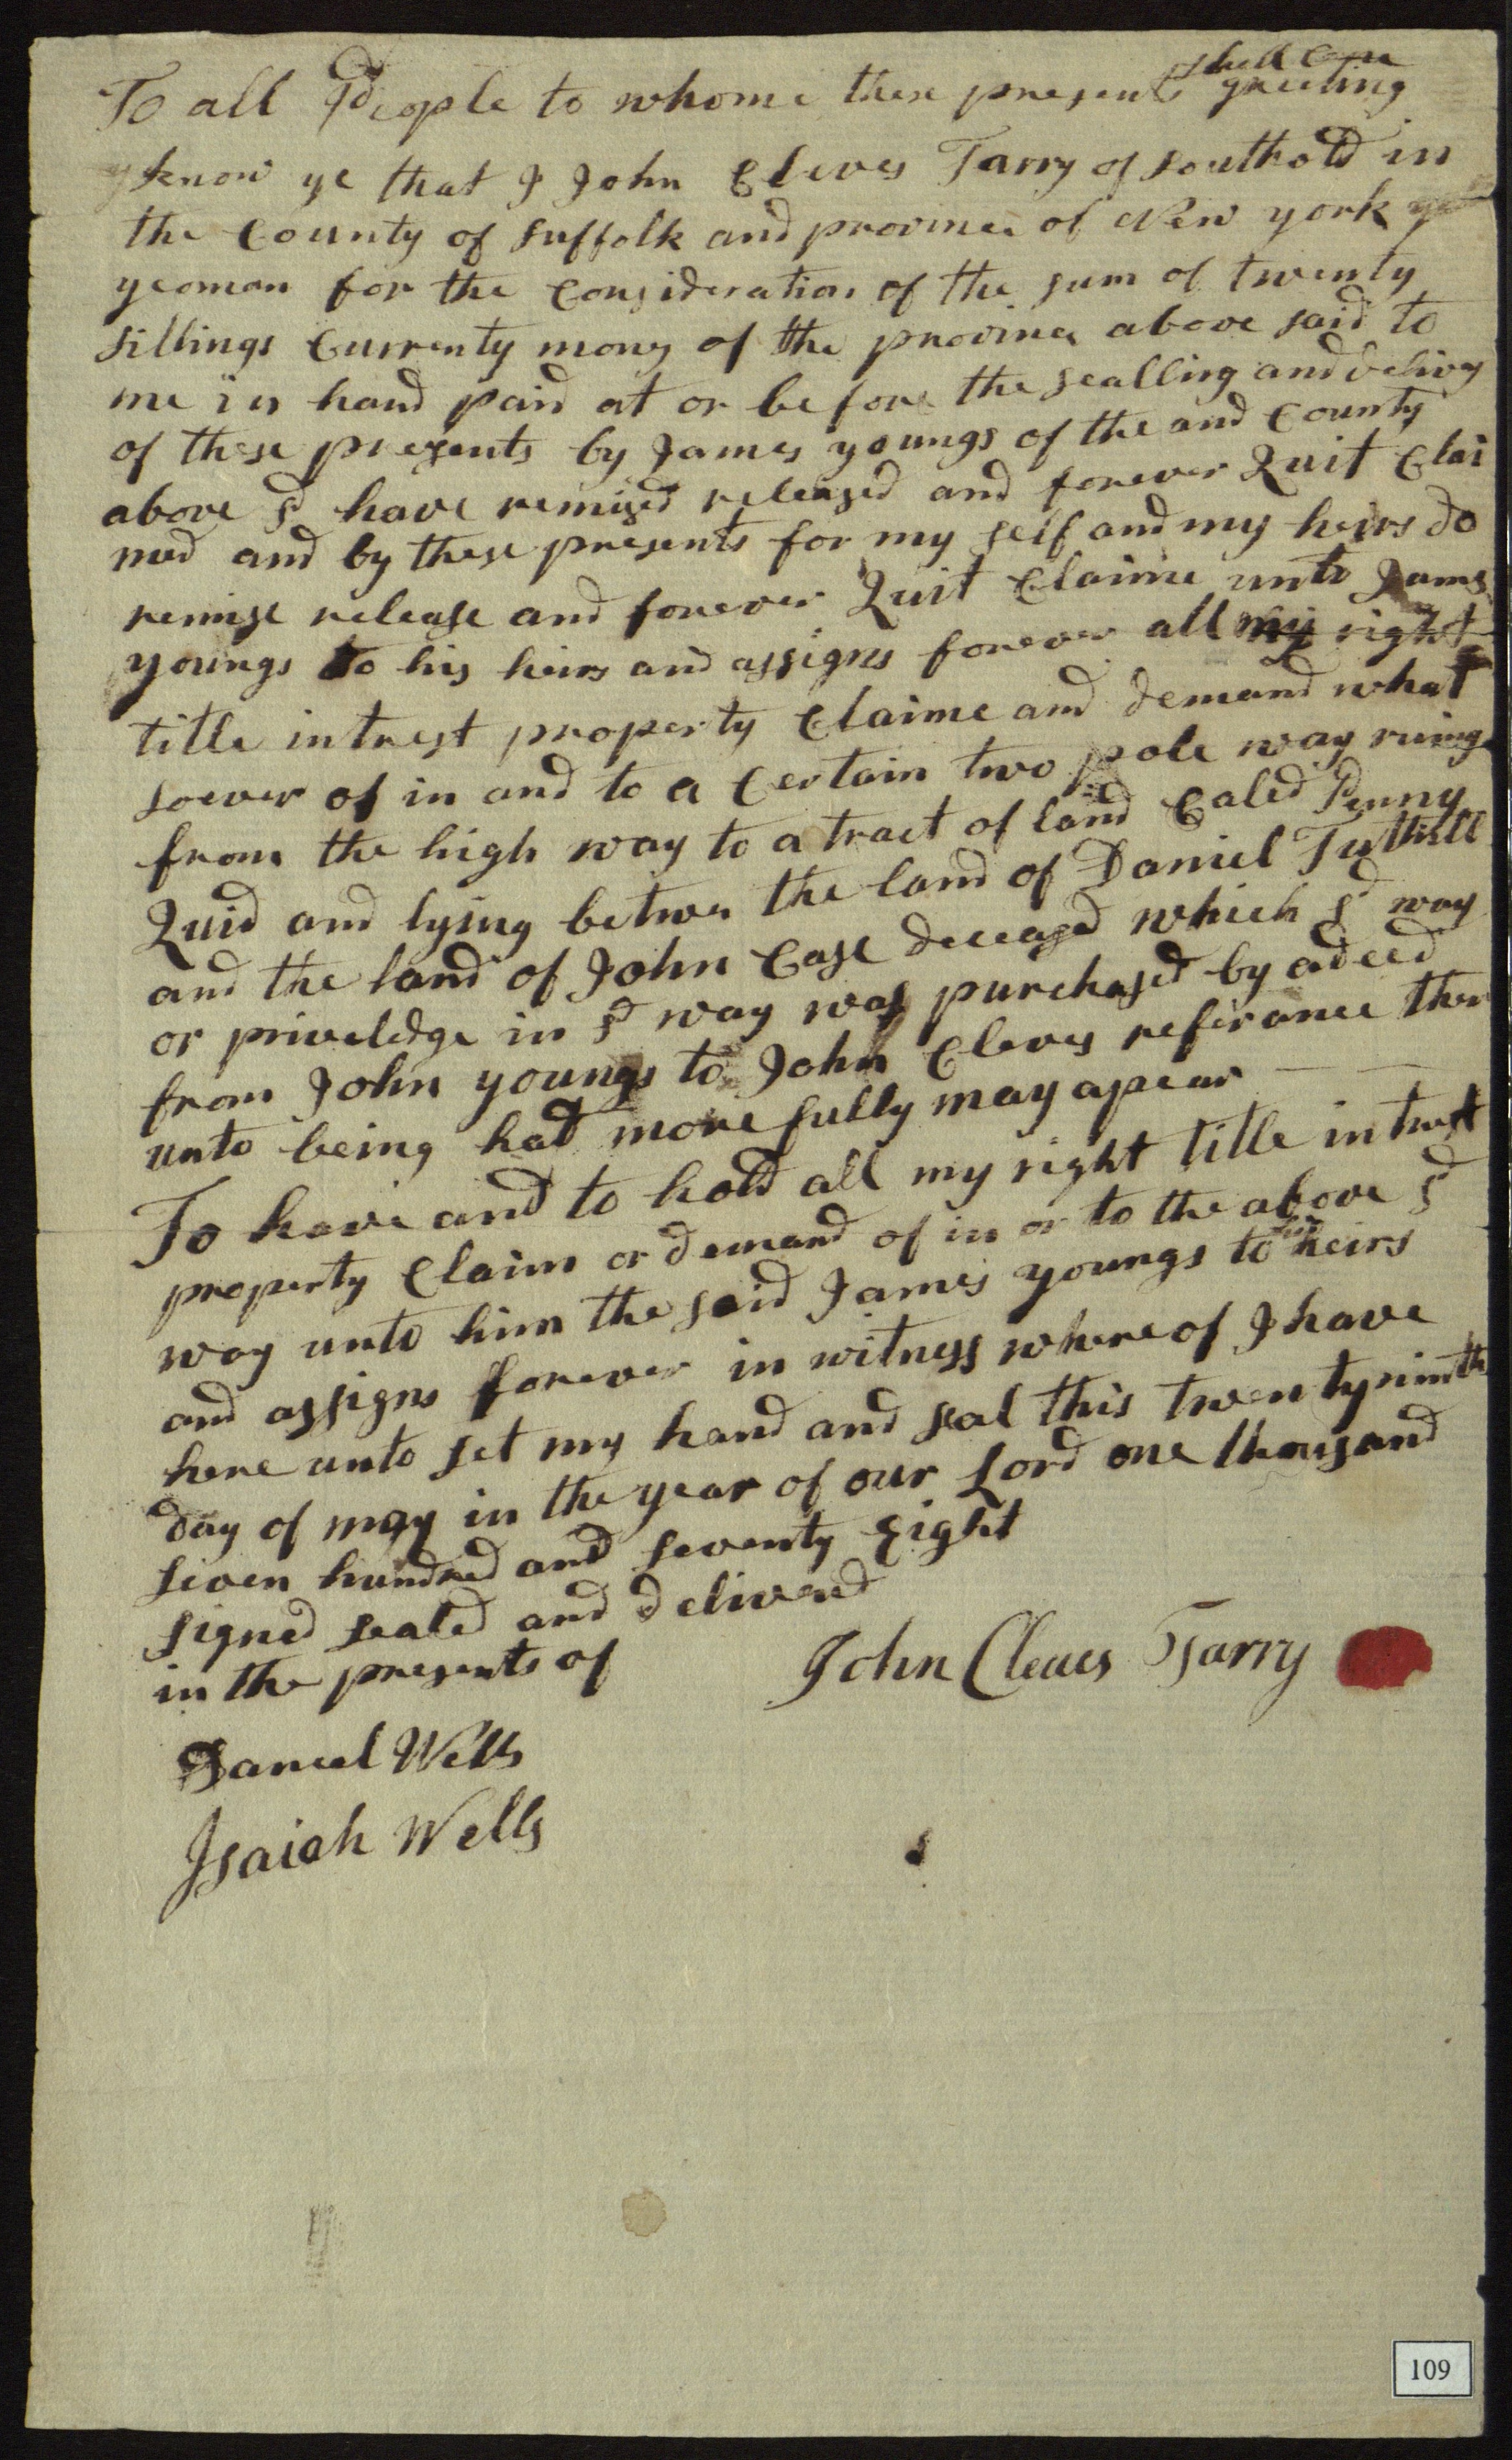 To all People to whome these presents shall Come greeting
know ye that I John Cleves Tarry of southold in
the County of suffolk and province of New york
yeoman for the Consideration of the sum of twenty
sillings Currenty mony of the province above said to
me in hand paid at or before the sealling and delivry
of these presents by James youngs of the and County
above sd have remised released and forever Quit Clai
med and by these presents for my self and my heirs do
remise release and forever Quit Claime unto James
youngs to his heirs and assigns forever all my right
title intrest property Claime and demand what
soever of in and to a Certain two pole way runing
from the high way to a tract of land Caled Penny
Quid and lying betwen the land of Daniel Tuthill
and the land of John Case deceased which sd way
or priveledge in sd way was purchased by a deed
from John youngs to John Cleves referance ther
unto being had more fully may apear
To have and to hold all my right title intrest
property Claim or demand of in or to the above sd
way unto him the said James youngs to his heirs
and assigns forever in witness where of I have
here unto set my hand and seal this twenty ninth
day of may in the year of our Lord one thousand
seven hundred and seventy Eight
signed sealed and delivered
in the presents of
John Cleves Tarry
Daniel Wells
Isaiah Wells
109